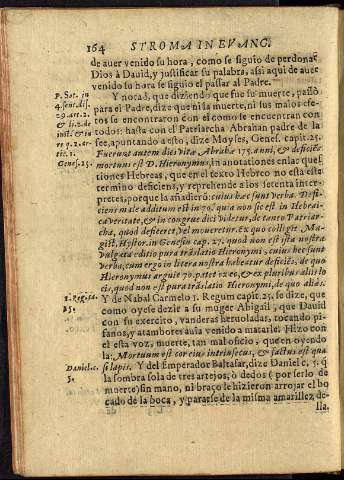 164 STROMA IN EVANG.
de auer venido su hora, como se siguio de perdonar
Dios à Dauid, y justificar su palabra, assi aqui de auer
venido su hora se siguiò el passar al Padre.
Y notad, que diziendo que fue su muerte, passo
para el Padre, dize que ni la muerte, ni sus malos efe-
tos se encontraron con el como se encuentran con
todos: hasta con el Patriarcha Abrahan padre de la
fee, apuntando a esto, dize Moyses, Genes. capit. 25.
Fuerunt autem dies vitæ, Abrahæ 175. anni, & deficiẽs
mortuus est D. Hieronymus, in anotationes enlas ques-
tiones Hebreas, que en el texto Hebreo no esta este
termino deficiens, y reprehende a los setenta inter-
pretes, porque la añadierõ: cuius hæc sunt verba. Defi-
ciens male additum est in 70. quia non sic est in Hebrai-
ca veritate, & in congrue dici videtur, de tanto Patriar-
cha, quod deficeret, vel moueretur. Ex quo colligit. Ma-
gist. Hystor. in Genesin cap. 27. quod non est ista nostra
Vulgata editio pura trãslatio Hieronymi, cuius hæc sunt
verba, cum ergo in litera nostra habeatur deficiẽs, de quo
Hieronymus arguit 70. patet ex eo, & ex pluribus alijs lo
cis, quod non est pura traslatio Hieronymi, de quo alias.
Y de Nabal Carmelo 1. Regum capit. 25. se dize, que
como oyese dezir a su muger Abigail, que Dauid
con su exercito, vanderas enroladas, tocando pi-
fanos, y atambores auia venido a matarle. Hizo con
el esta voz, muerte, tan mal oficio, que en oyendo
la: Mortuum est cor eius intrinsecus, & factus est qua
si lapis. Y del Emperador Baltasar, dize Daniel c. 5. q̃
la sombra sola de tres artejos, ò dedos (por serlo de
muerte) sin mano, ni braço le hizieron arrojar el bo
cado de la boca, y pararse de la misma amarillez, de-
lla.
P. Sot. in
4. sent. dis.
29. art. 2.
& li. 2. de
inst. & iu
re q. 2. ar-
tic. 1.
Genes. 25.
1. Reg. ca.
25.
Daniel. c.
5.